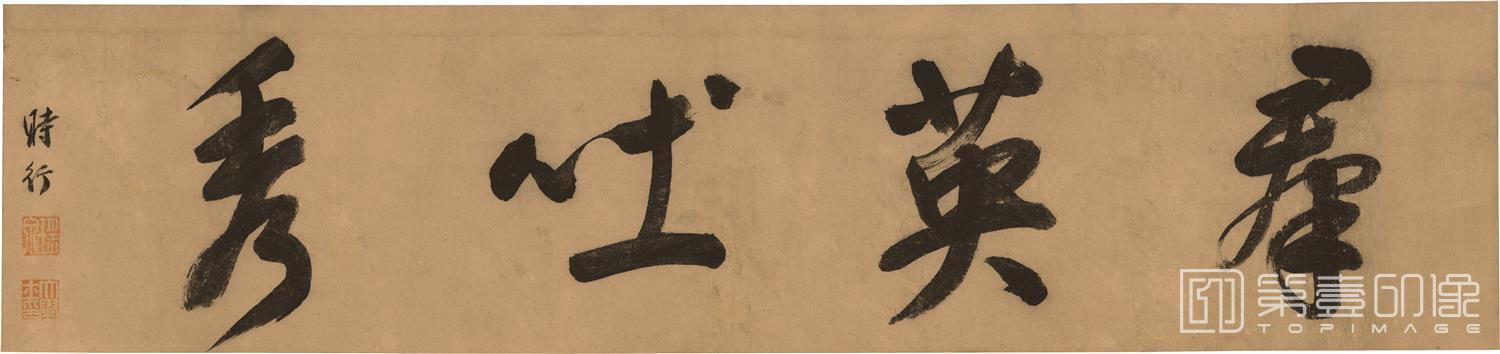 羣英吐秀
時行
第壹印像
TOPIMAGE